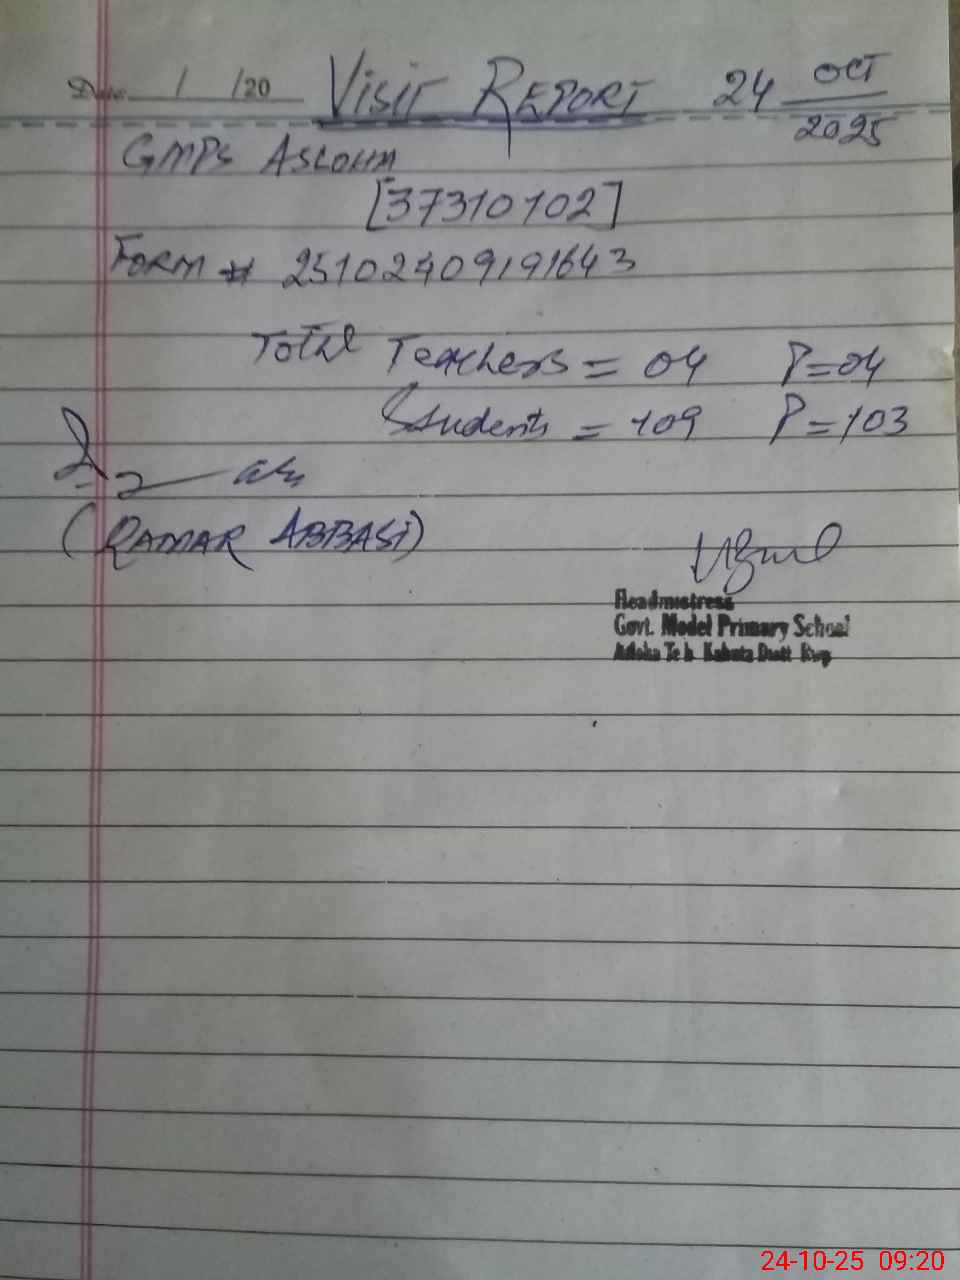 Date / /20 VISIT REPORT 24 OCT 2025
GMPS
[37310102]
FORM # 25102409191643
Total Teachers = 04 P=04
Students = 109 P=103
(QAMAR ABBASI)
Headmistress
Govt. Model Primary School
Kahuta Distt Rwp
24-10-25 09:20